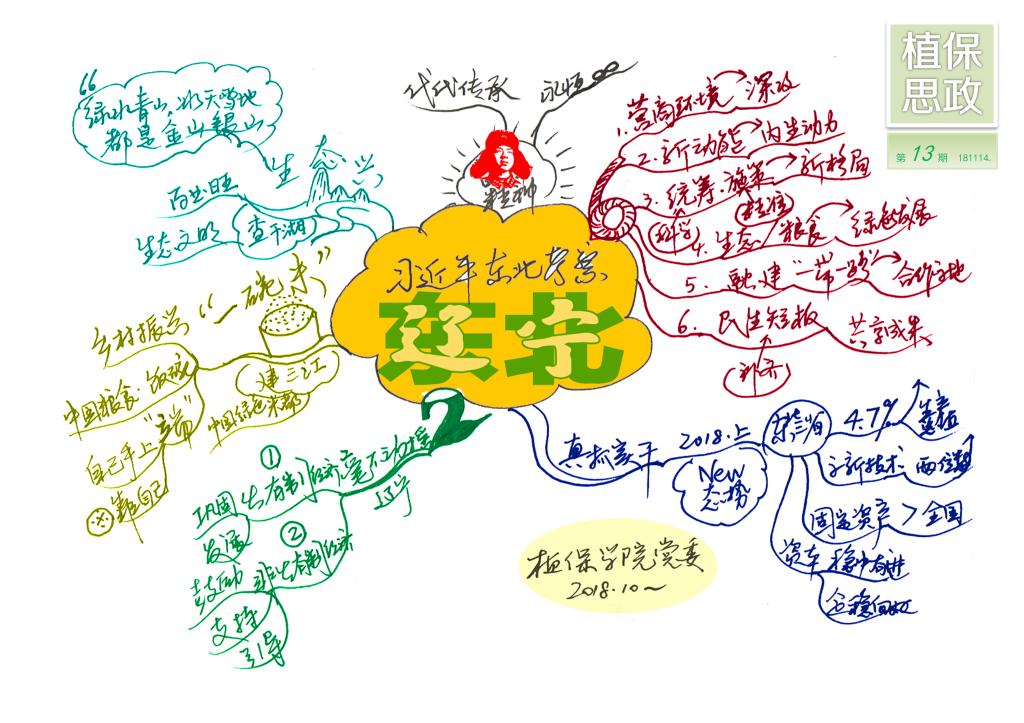 植保
思政
第 13 期 181114.
代代传承
永恒
精神
习近平东北考察
东北
辽宁
1. 营商环境 深改
2. 新动能 内生动力
3. 统筹·施策 新格局
科学
精准
4. 生态/粮食 绿色发展
5. 融·建 "一带一路" 合作高地
6. 民生短板 共享成果
补齐
真抓实干
2018.上
New
态势
东三省
4.7%
高新技术 两位数
固定资产 > 全国
资车 稳中有进
企稳向好
植保学院党委
2018.10~
2
辽宁
①
巩固 公有制经济毫不动摇
发展
②
鼓励 非公有制经济
支持
引导
"一碗米"
建三江
中国绿色米都
乡村振兴
中国粮食·饭碗
"端"
自己手上
※ 靠自己
生态兴
查干湖
百业旺
生态文明
"绿水青山,冰天雪地
都是金山银山